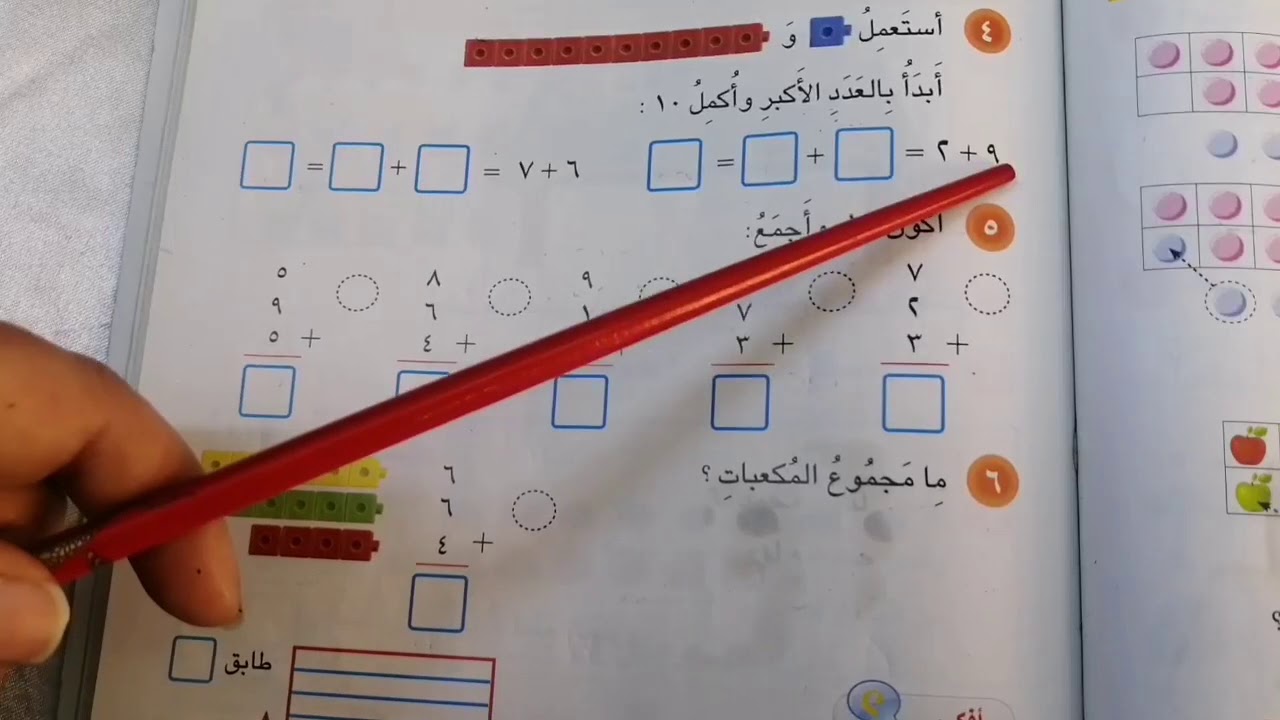 ٤ أَستَعمِلُ وَ
أَبدَأُ بِالعَدَدِ الأَكبرِ وأُكمِلُ ١٠ :
٩ + ٢ = + =
٦ + ٧ = + =
٥ وأَجمَعُ:
٧
٢
+ ٣
٧
+ ٣
٩
١
٨
٦
+ ٤
٥
٩
+ ٥
٦ مِا مَجمُوعُ المُكعباتِ ؟
٦
٦
+ ٤
طابق